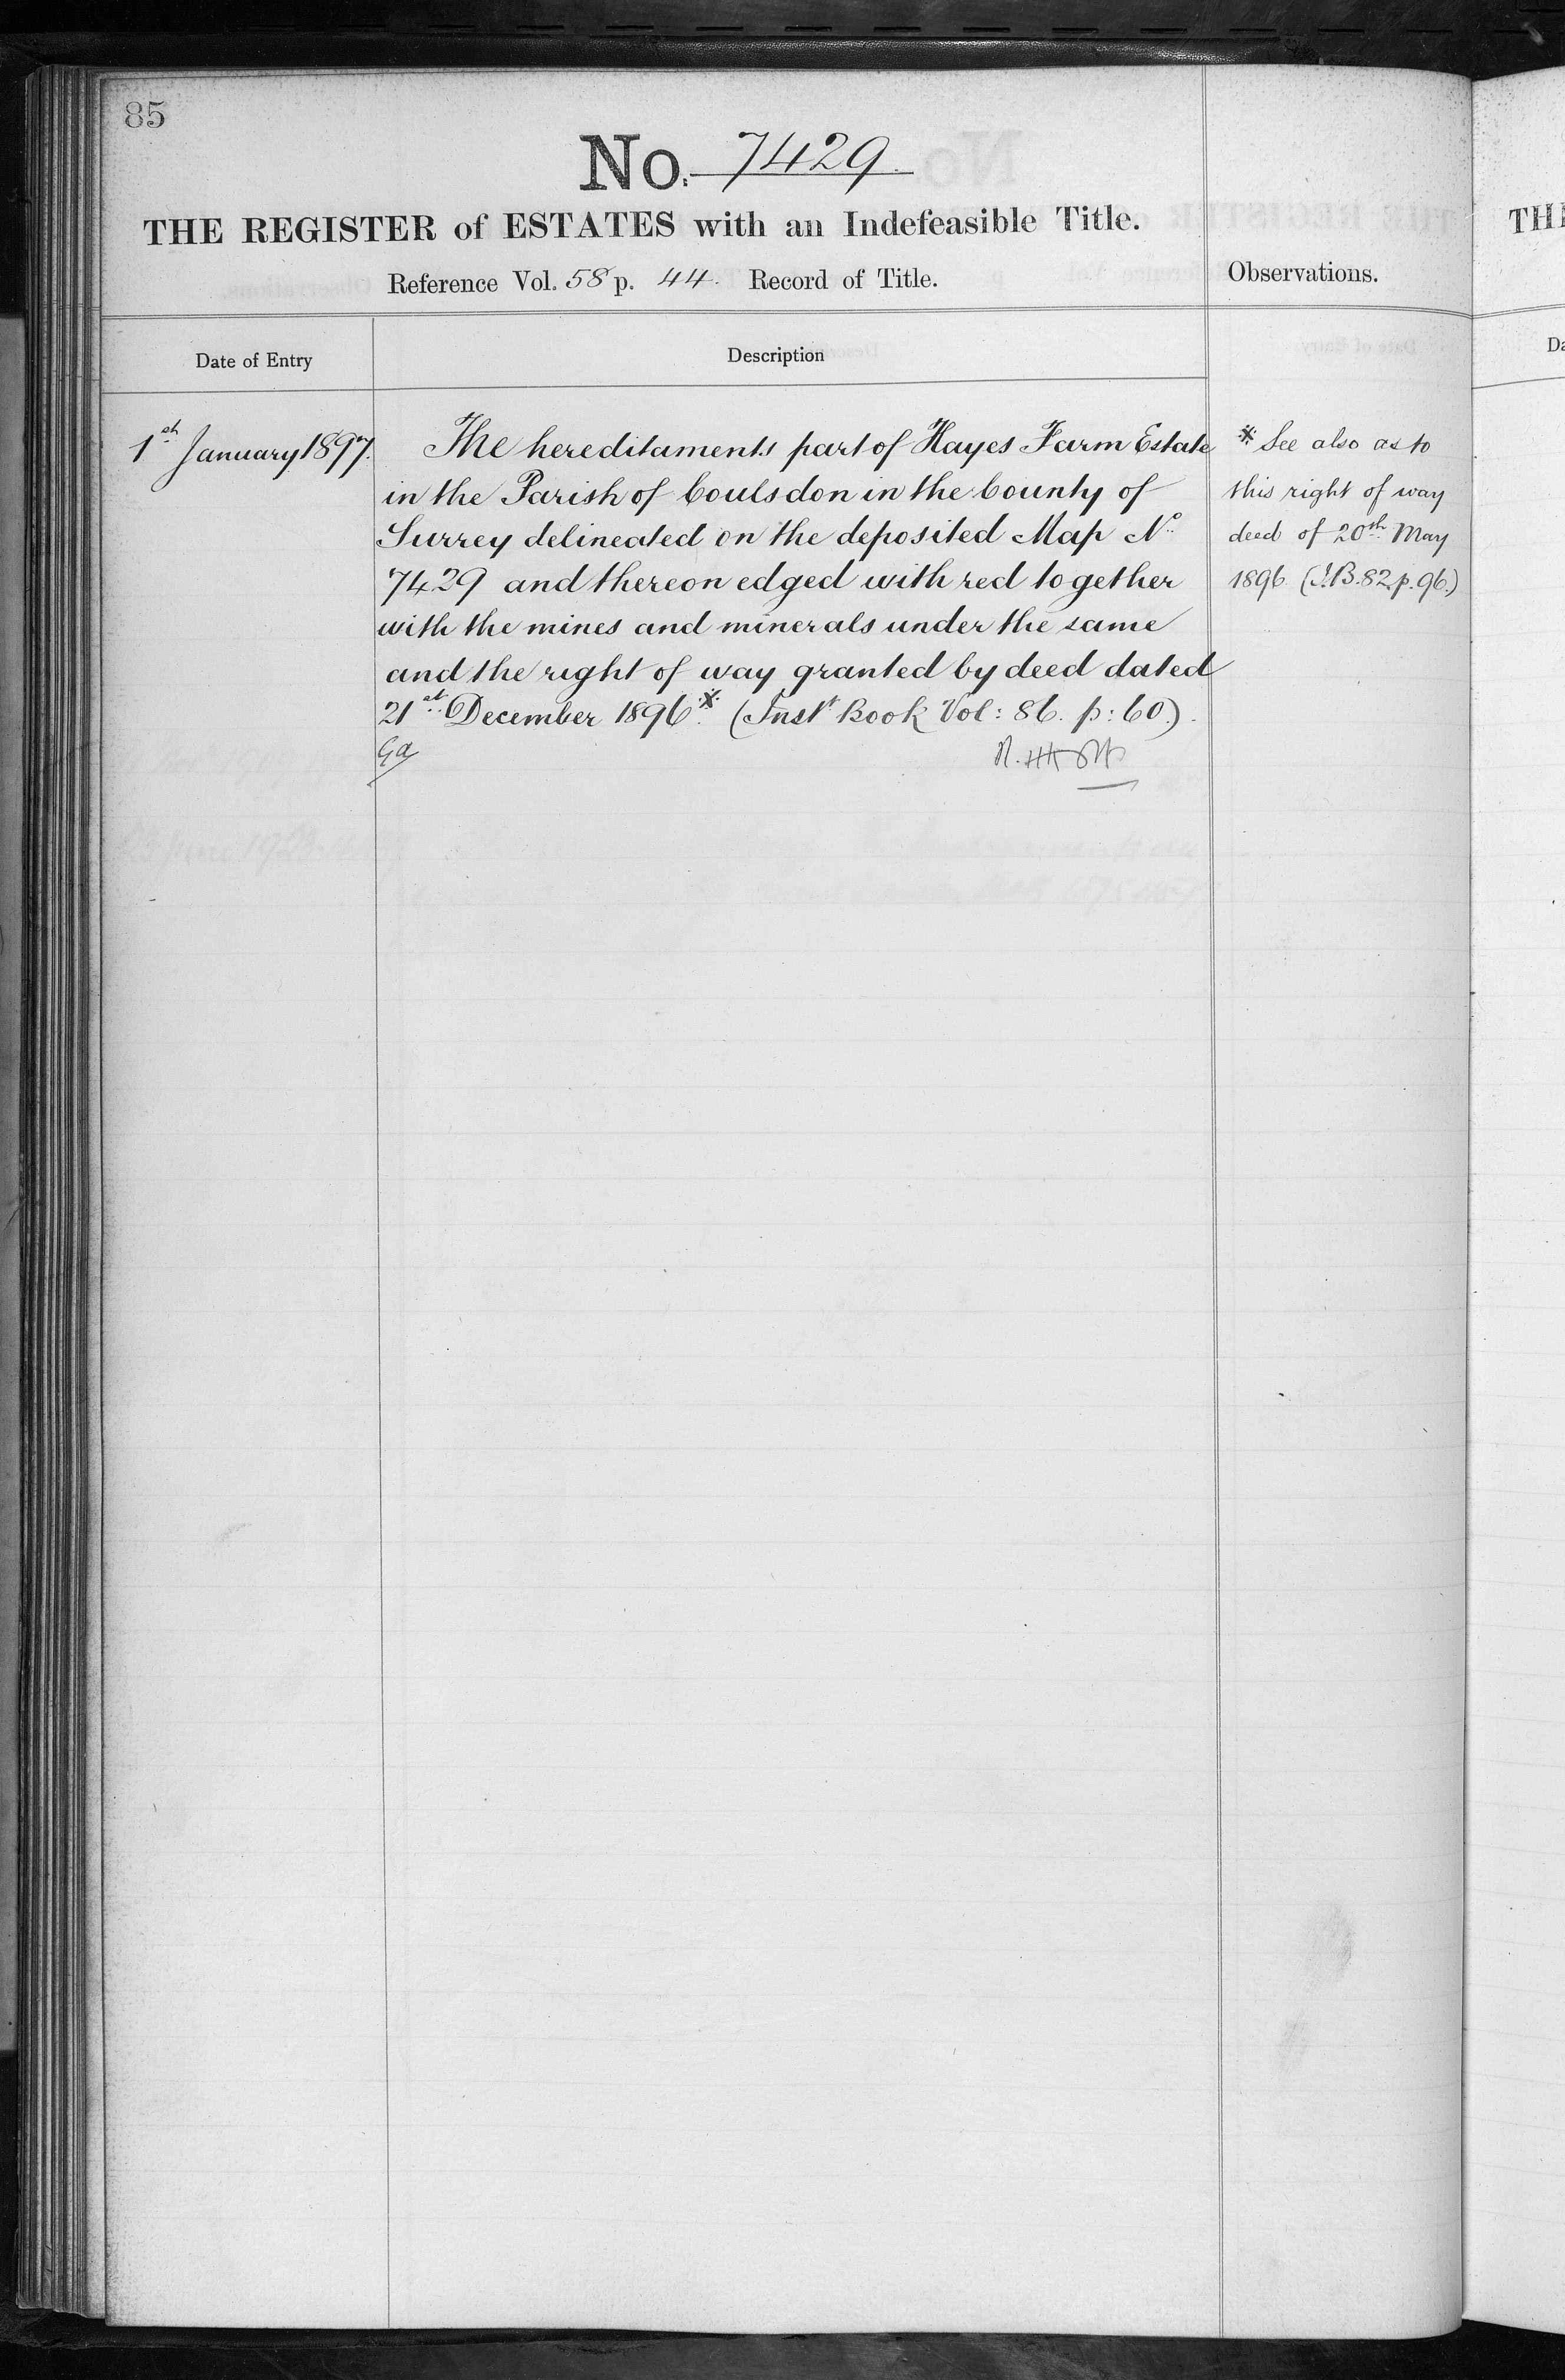 85
No. 7429.
THE REGISTER of ESTATES with an Indefeasible Title.
Reference Vol. 58 p. 44. Record of Title.
Observations.
Date of Entry
Description
1st January 1897.
The hereditaments part of Hayes Farm Estate
in the Parish of Coulsdon in the County of
Surrey delineated on the deposited Map No
7429 and thereon edged with red together
with the mines and minerals under the same
and the right of way granted by deed dated
21st December 1896.* (Inst Book Vol: 86. p: 60.).
* See also as to
this right of way
deed of 20th May
1896 (I.B. 82 p. 96.)
TH
Da